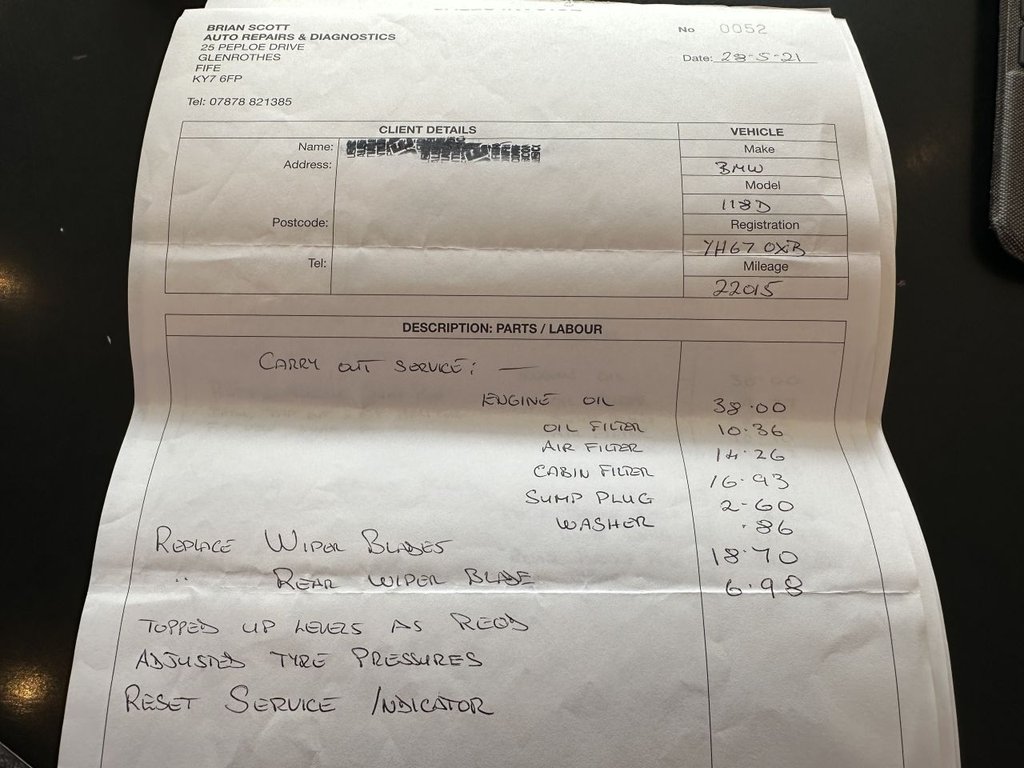 BRIAN SCOTT
AUTO REPAIRS & DIAGNOSTICS
25 PEPLOE DRIVE
GLENROTHES
FIFE
KY7 6FP
Tel: 07878 821385
No 0052
Date: 28-5-21
CLIENT DETAILS
Name:
Address:
Postcode:
Tel:
VEHICLE
Make
BMW
Model
118D
Registration
YH67 OXB
Mileage
22015
DESCRIPTION: PARTS / LABOUR
CARRY OUT SERVICE: —
ENGINE OIL 38.00
OIL FILTER 10.36
AIR FILTER 14.26
CABIN FILTER 16.93
SUMP PLUG 2-60
WASHER .86
REPLACE WIPER BLADES 18.70
" REAR WIPER BLADE 6.98
TOPPED UP LEVELS AS REQD
ADJUSTED TYRE PRESSURES
RESET SERVICE INDICATOR